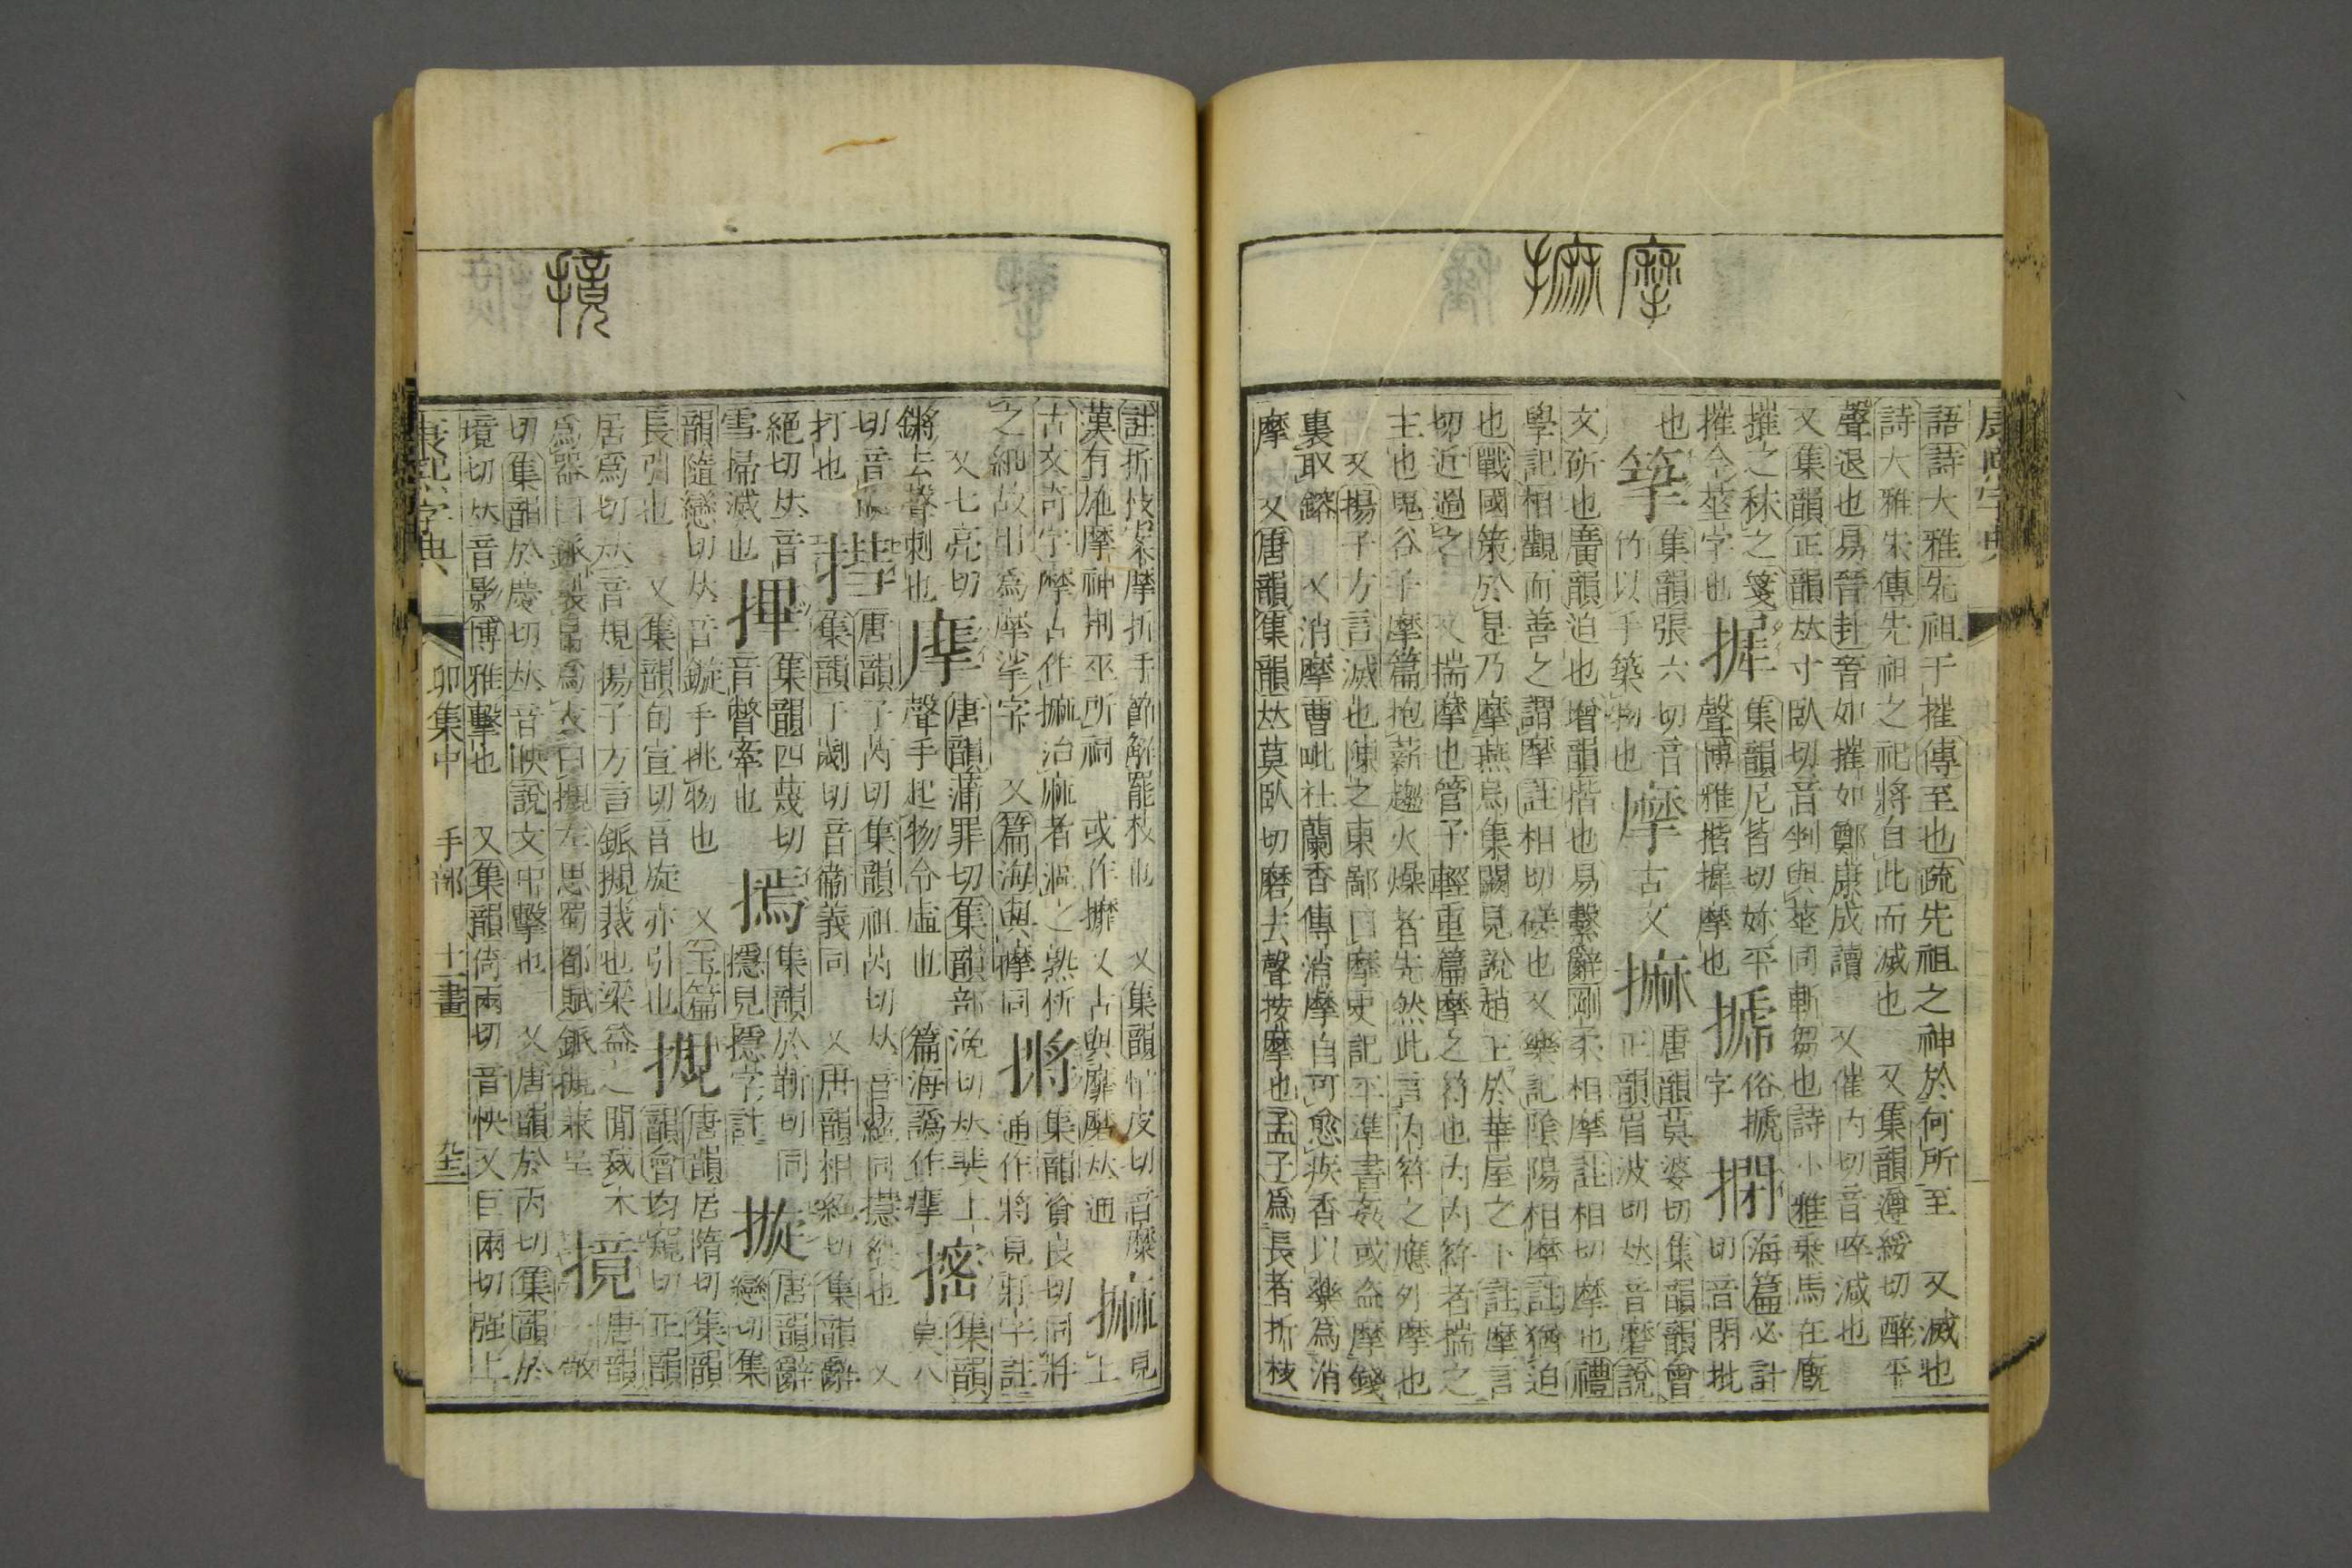 摩 㩢
康熙字典
語詩大雅先祖于摧傳至也疏先祖之神於何所至 又滅也
詩大雅朱傳先祖之祀將自此而滅也 又集韻遵綏切醉平
聲退也易晉卦晉如摧如鄭康成讀 又催內切音啐滅也
又集韻正韻𠀤寸臥切音剉與莝同斬芻也詩小雅乘馬在廐
摧之秣之箋
摧今莝字也
集韻尼皆切
聲博雅揩摨摩也
俗搋
字
海篇必計
切音閉批
也
集韻張六切音
竹以手築物也
摩
古文
唐韻莫婆切集韻韻會
正韻眉波切𠀤音磨說
文硏也廣韻迫也增韻揩也易繫辭剛柔相摩註相切摩也禮
學記相觀而善之謂摩註相切磋也又樂記陰陽相摩註猶迫
也戰國策於是乃摩燕烏集闕見說趙王於華屋之下註摩言
切近過之 又揣摩也管子輕重篇摩之符也內內符者揣之
主也鬼谷子摩篇抱薪趨火燥者先然此言內符之應外摩也
又揚子方言滅也陳之東鄙曰摩史記平準書姦或盜摩錢
裏取鎔 又消摩曹毗杜蘭香傳消摩自可愈疾香以藥爲消
摩 又唐韻集韻𠀤莫臥切磨去聲按摩也孟子爲長者折枝
撹
註折枝案摩折手節解罷枝也 又集韻忙皮切音糜
漢有雄摩神荆巫所祠 或作攠 又古與靡磨𠀤通
見
上
古文奇字摩古作㩢治麻者漚之熟析
之細故㧗爲摩挲字 又篇海與㩢同
集韻資良切同將
通作將見爿字註
又七亮切
鏘去聲刺也
唐韻蒲罪切集韻部浼切𠀤裴上
聲手起物令虛也 篇海譌作㩧
集韻
莫八
切音
打也
唐韻子芮切集韻祖芮切𠀤音蕝同撍裂也 又
集韻于劌切音衞義同 又唐韻相絕切集韻辭
絕切𠀤音
雪掃滅也
集韻四蔑切
音瞥牽也
集韻於靳切同
隱見隱字註
唐韻辭
戀切集
韻隨戀切𠀤音鏇手挑物也 又玉篇
長引也 又集韻旬宣切音旋亦引也
唐韻居隋切集韻
韻會均窺切正韻
居爲切𠀤音規揚子方言鈲摫裁也梁益之閒裁木
爲器曰鈲裂帛爲衣曰摫左思蜀都賦鈲摫兼呈
唐韻
切集韻於慶切𠀤音映說文中擊也 又唐韻於丙切集韻於
境切𠀤音影博雅擊也 又集韻倚兩切音怏又巨兩切强上
康熙字典
卯集中 手部 十一畫